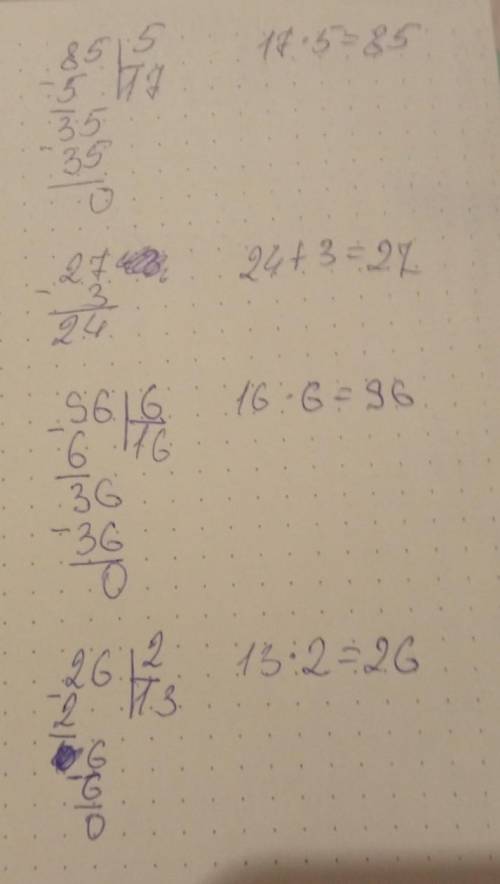 85 | 5 17 · 5 = 85
- 5 | 17
35
- 35
0
27 24 + 3 = 27
- 3
24
- 96 | 6 16 · 6 = 96
6 | 16
36
- 36
0
- 26 | 2 13 · 2 = 26
2 | 13
6
- 6
0